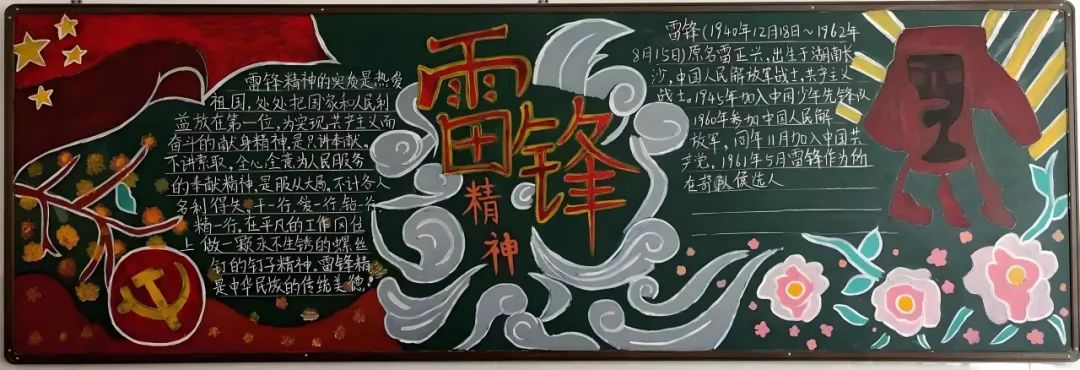 雷锋精神的实质是热爱
祖国,处处把国家和人民利
益放在第一位,为实现共产主义而
奋斗的献身精神,是只讲奉献,
不讲索取,全心全意为人民服务
的奉献精神,是服从大局,不计个人
名利得失,干一行,爱一行,钻一行,
精一行,在平凡的工作岗位
上做一颗永不生锈的螺丝
钉的钉子精神,雷锋精
是中华民族的传统美德!
雷锋
精神
雷锋(1940年12月18日~1962年
8月15日)原名雷正兴,出生于湖南长
沙,中国人民解放军战士,共产主义
战士,1945年加入中国少年先锋队
1960年参加中国人民解
放军,同年11月加入中国共
产党,1961年5月雷锋作为所
在部队候选人